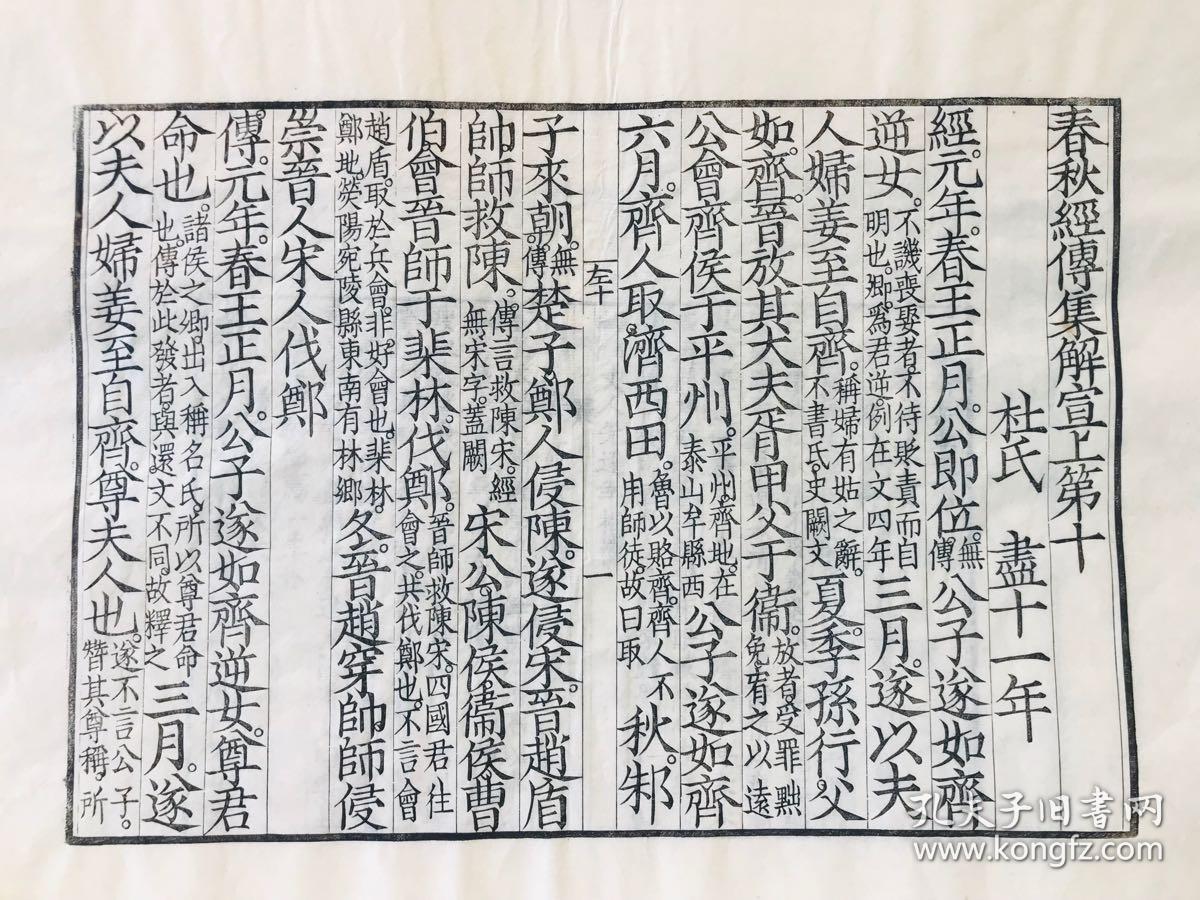 春秋經傳集解宣上第十
杜氏　盡十一年
經。元年。春王正月。公即位。無傳。公子遂如齊
逆女。不譏喪娶者。不待貶責而自明也。卿爲君逆。例在文四年。三月。遂以夫
人婦姜至自齊。稱婦有姑之辭。不書氏。史闕文。夏。季孫行父
如齊。晉放其大夫胥甲父于衞。放者。受罪黜免。宥之以遠
公會齊侯于平州。平州。齊地。在泰山牟縣西。公子遂如齊
六月。齊人取濟西田。魯以賂齊。齊人不用師徒。故曰取。秋。邾
左十　一
子來朝。無傳。楚子鄭人侵陳。遂侵宋。晉趙盾
帥師救陳。傳言救陳宋。經無宋字。蓋闕。宋公陳侯衞侯曹
伯會晉師于棐林伐鄭。晉師救陳宋。四國君往會之。共伐鄭也。不言會
趙盾。取於兵會。非。好會也。棐林。鄭地。熒陽宛陵縣東南有林鄉。冬。晉趙穿帥師侵
崇。晉人宋人伐鄭
傳。元年。春王正月。公子遂如齊逆女。尊君
命也。諸侯之卿。出入稱名氏。所以尊君命也。傳於此發者。與還文不同。故釋之。三月。遂
以夫人婦姜至自齊。尊夫人也。遂不言公子。替其尊稱。所
孔夫子旧书网
www.kongfz.com